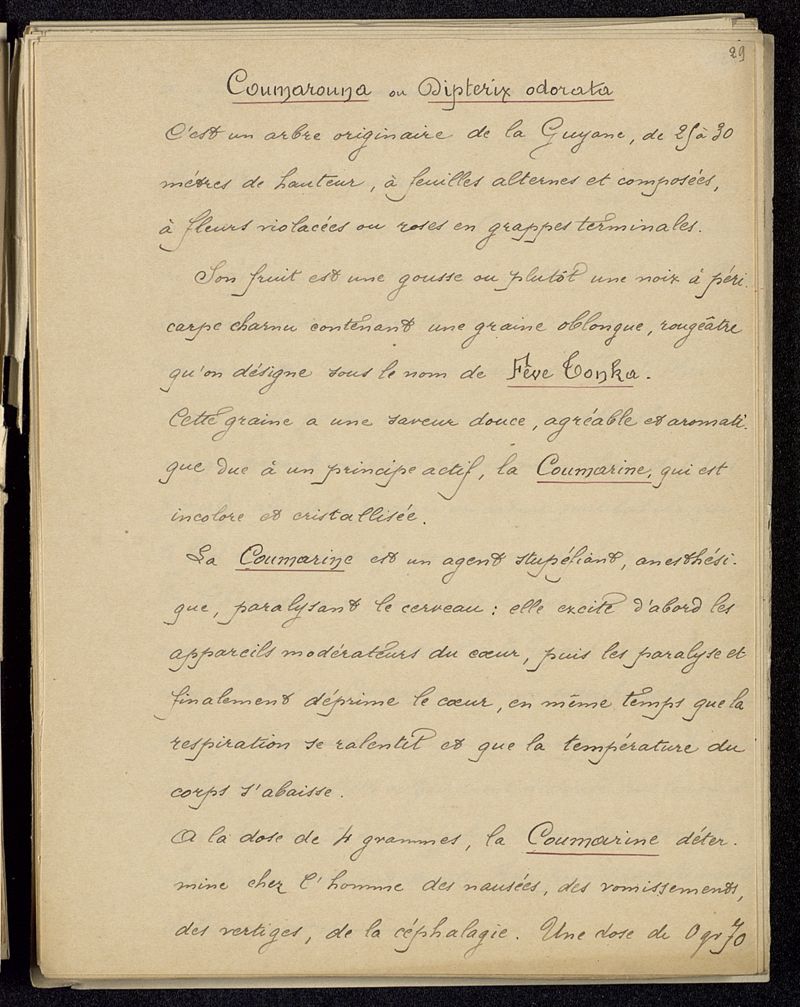 29
Coumarouna ou Dipterix odorata
C'est un arbre originaire de la Guyane, de 25 à 30
mètres de hauteur, à feuilles alternes et composées,
à fleurs violacées ou roses en grappes terminales.
Son fruit est une gousse ou plutôt une noix à péri-
carpe charnu contenant une graine oblongue, rougeâtre
qu'on désigne sous le nom de Fève Tonka.
Cette graine a une saveur douce, agréable et aromati-
que due à un principe actif, la Coumarine, qui est
incolore et cristallisée.
La Coumarine est un agent stupéfiant, anesthési-
que, paralysant le cerveau : elle excite d'abord les
appareils modérateurs du cœur, puis les paralyse et
finalement déprime le cœur, en même temps que la
respiration se ralentit et que la température du
corps s'abaisse.
A la dose de 4 grammes, la Coumarine déter-
mine chez l'homme des nausées, des vomissements,
des vertiges, de la céphalagie. Une dose de 0 gr 70